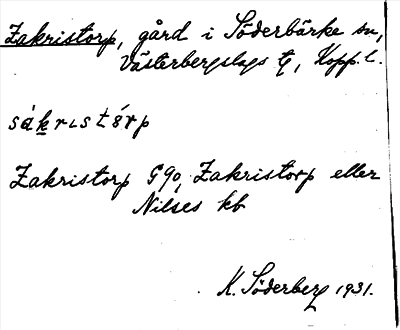 Zakristorp, gård i Söderbärke sn,
Västerbergslags tg, Kopp. l.
sákrıstórp
Zakristorp G90, Zakristorp eller
Nilses kb
K. Söderberg 1931.